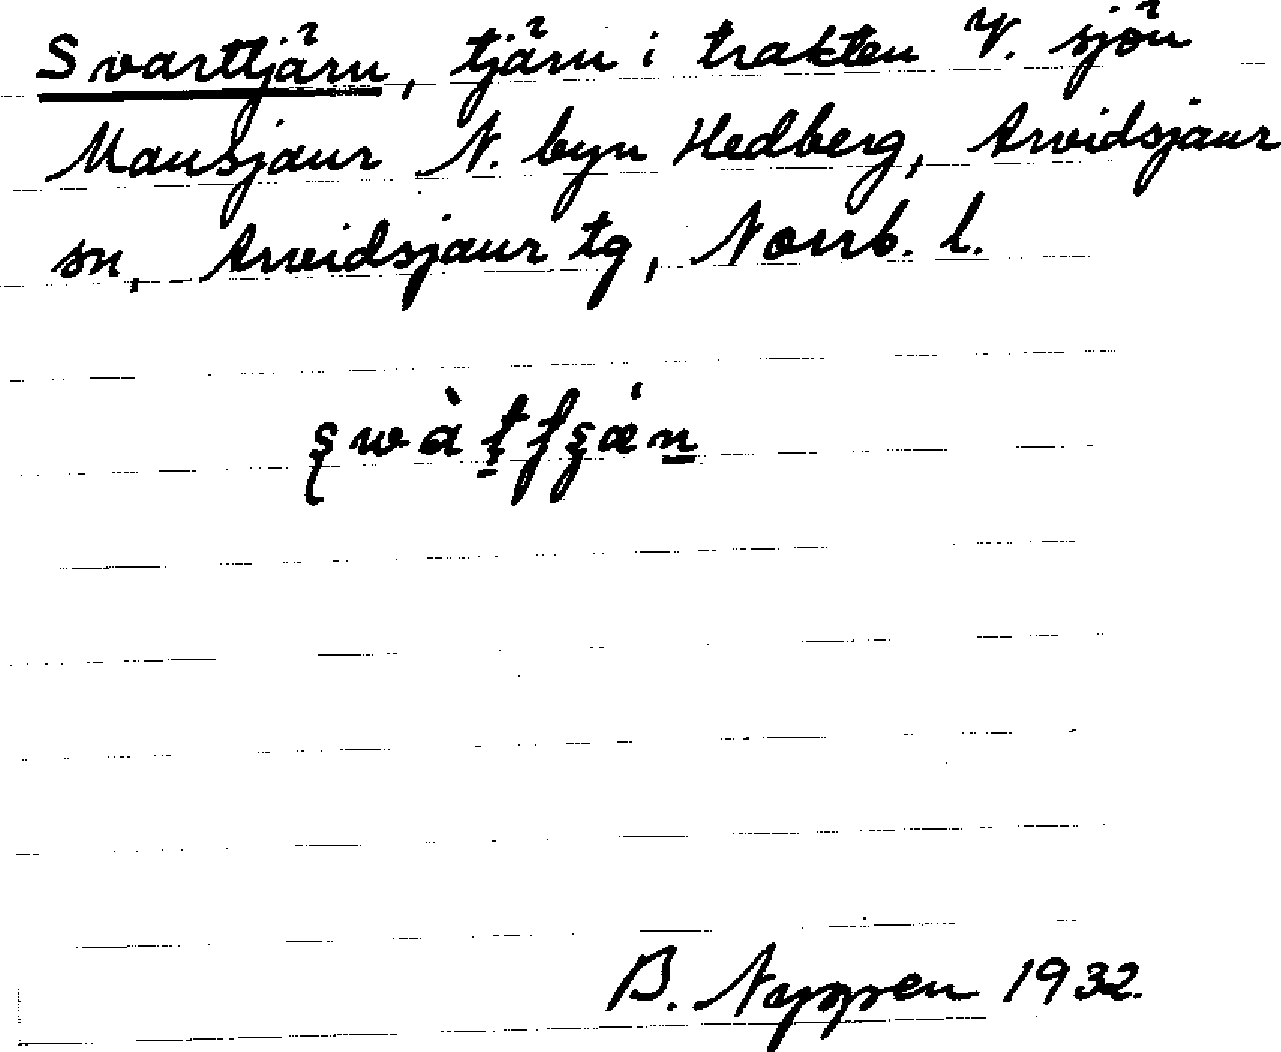 Svarttjärn, tjärn i trakten V. sjön
Mausjaur N. byn Hedberg, Arvidsjaur
sn, Arvidsjaur tg, Norrb. l.
B. 1932.